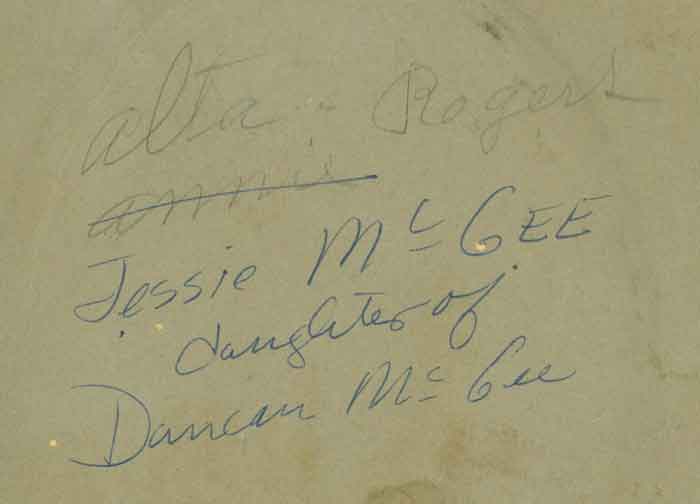 alta Rogers
annie
Jessie Mc GEE
daughter of
Duncan Mc Gee